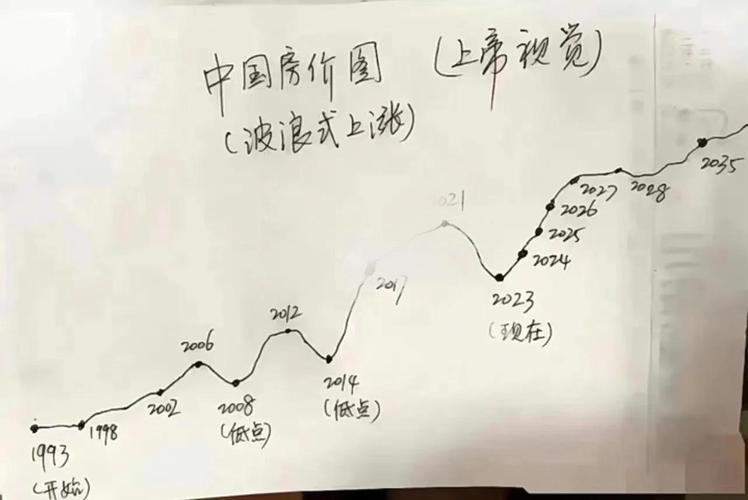 中国房价图 (上帝视觉)
(波浪式上涨)
1993
(开始)
1998
2002
2006
2008
(低点)
2012
2014
(低点)
2017
2021
2023
(现在)
2024
2025
2026
2027
2028
2035